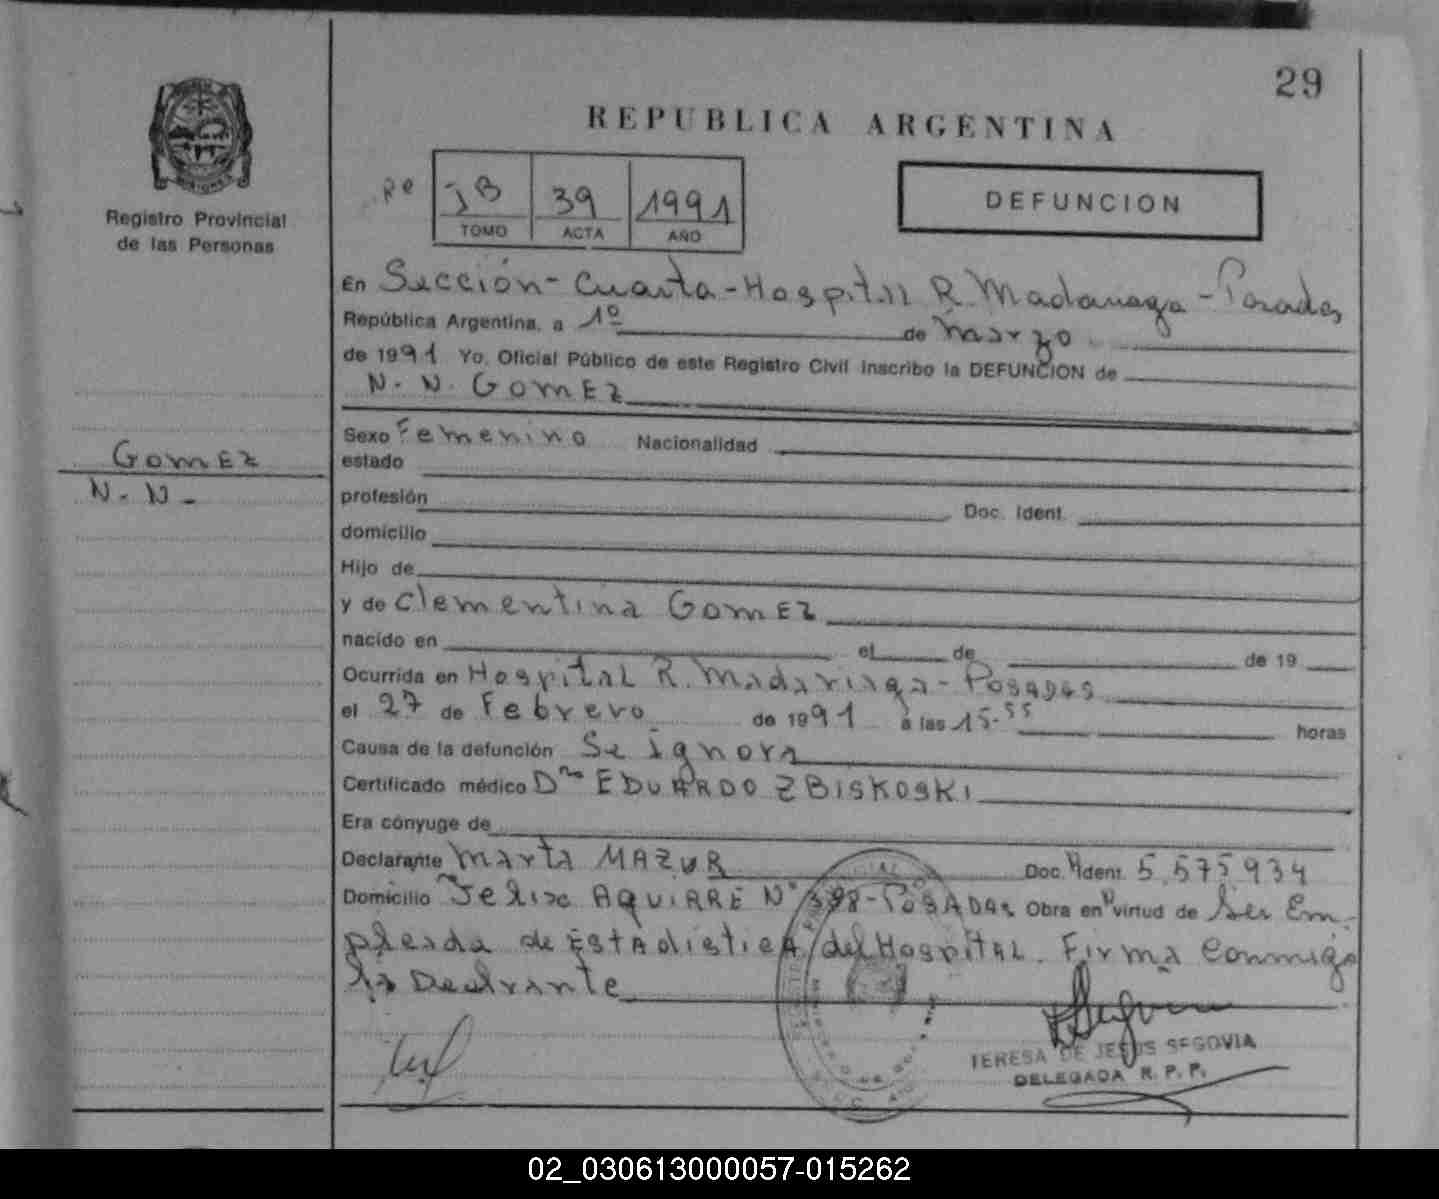 29
REPUBLICA ARGENTINA
39 1991
TOMO ACTA AÑO
DEFUNCION
MISIONES
Registro Provincial
de las Personas
En Sección-Cuarta-Hospital R. Madariaga-Posadas
República Argentina, a 1º de Marzo
de 1991 Yo, Oficial Público de este Registro Civil inscribo la DEFUNCION de
N. N. GOMEZ
Sexo Femenino Nacionalidad
GOMEZ
N. N.
estado
profesión Doc. Ident.
domicilio
Hijo de
y de Clementina GOMEZ
nacido en el de de 19
Ocurrida en Hospital R. Madariaga-POSADAS
el 27 de Febrero de 1991 a las 15-55 horas
Causa de la defunción Se ignora
Certificado médico EDUARDO ZBISKOSKI
Era cónyuge de
Declarante Marta MAZUR Doc. Ident. 5.575934
Domicilio AGUIRRE Nº 398-POSADAS Obra en virtud de Ser Em-
pleada de ESTADISTICA del HOSPITAL. Firma Conmigo
la Declrante
TERESA DE JESUS SEGOVIA
DELEGADA R. P. P.
02_030613000057-015262